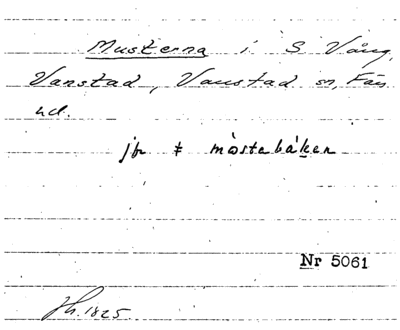 Musterna i S Vång,
Vanstad, Vanstad sn, Färs
hd.
jfr ‡ måstabåken
Nr 5061
1825